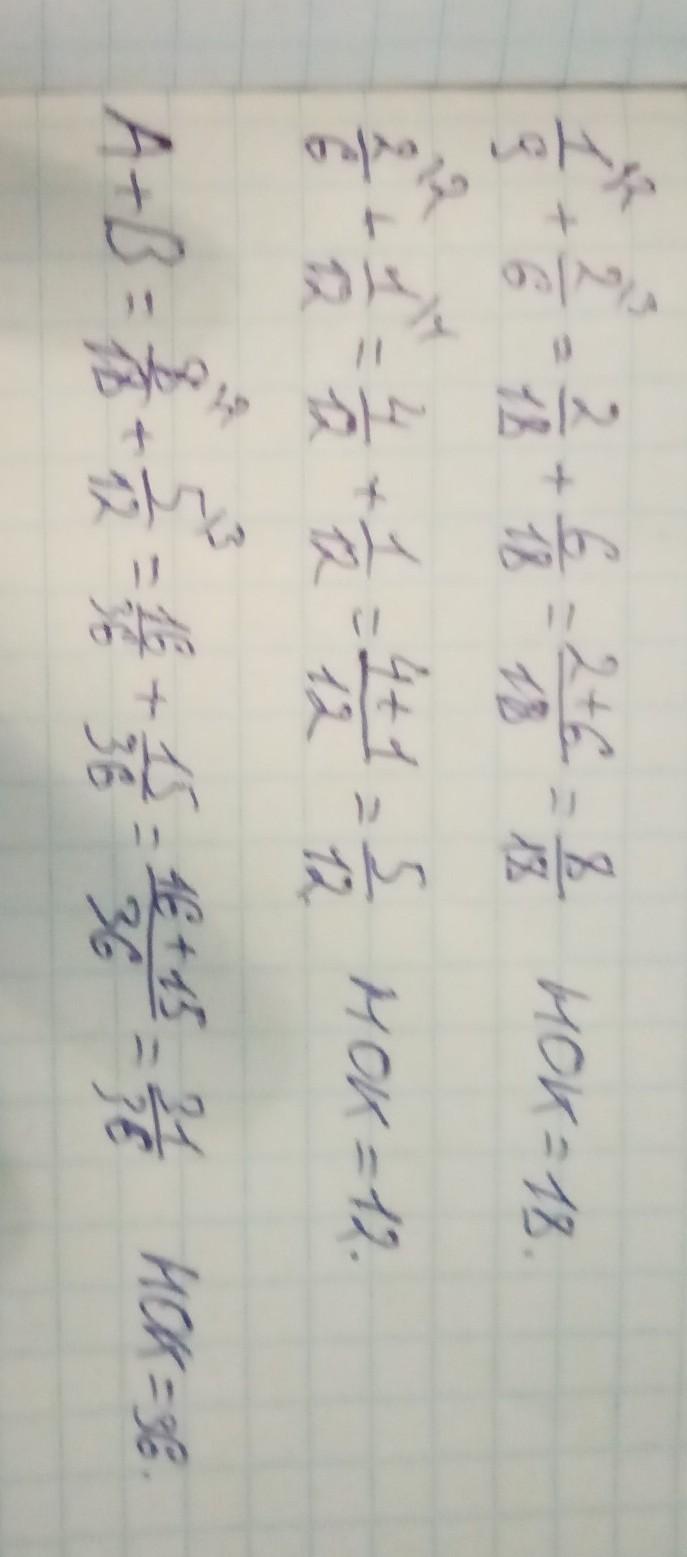 1\2/9 + 2\3/6 = 2/18 + 6/18 = 2+6/18 = 8/18 НОК = 18.
2\2/6 + 1\1/12 = 4/12 + 1/12 = 4+1/12 = 5/12 НОК = 12.
A + B = 8\2/18 + 5\3/12 = 16/36 + 15/36 = 16+15/36 = 31/36 НОК = 36.